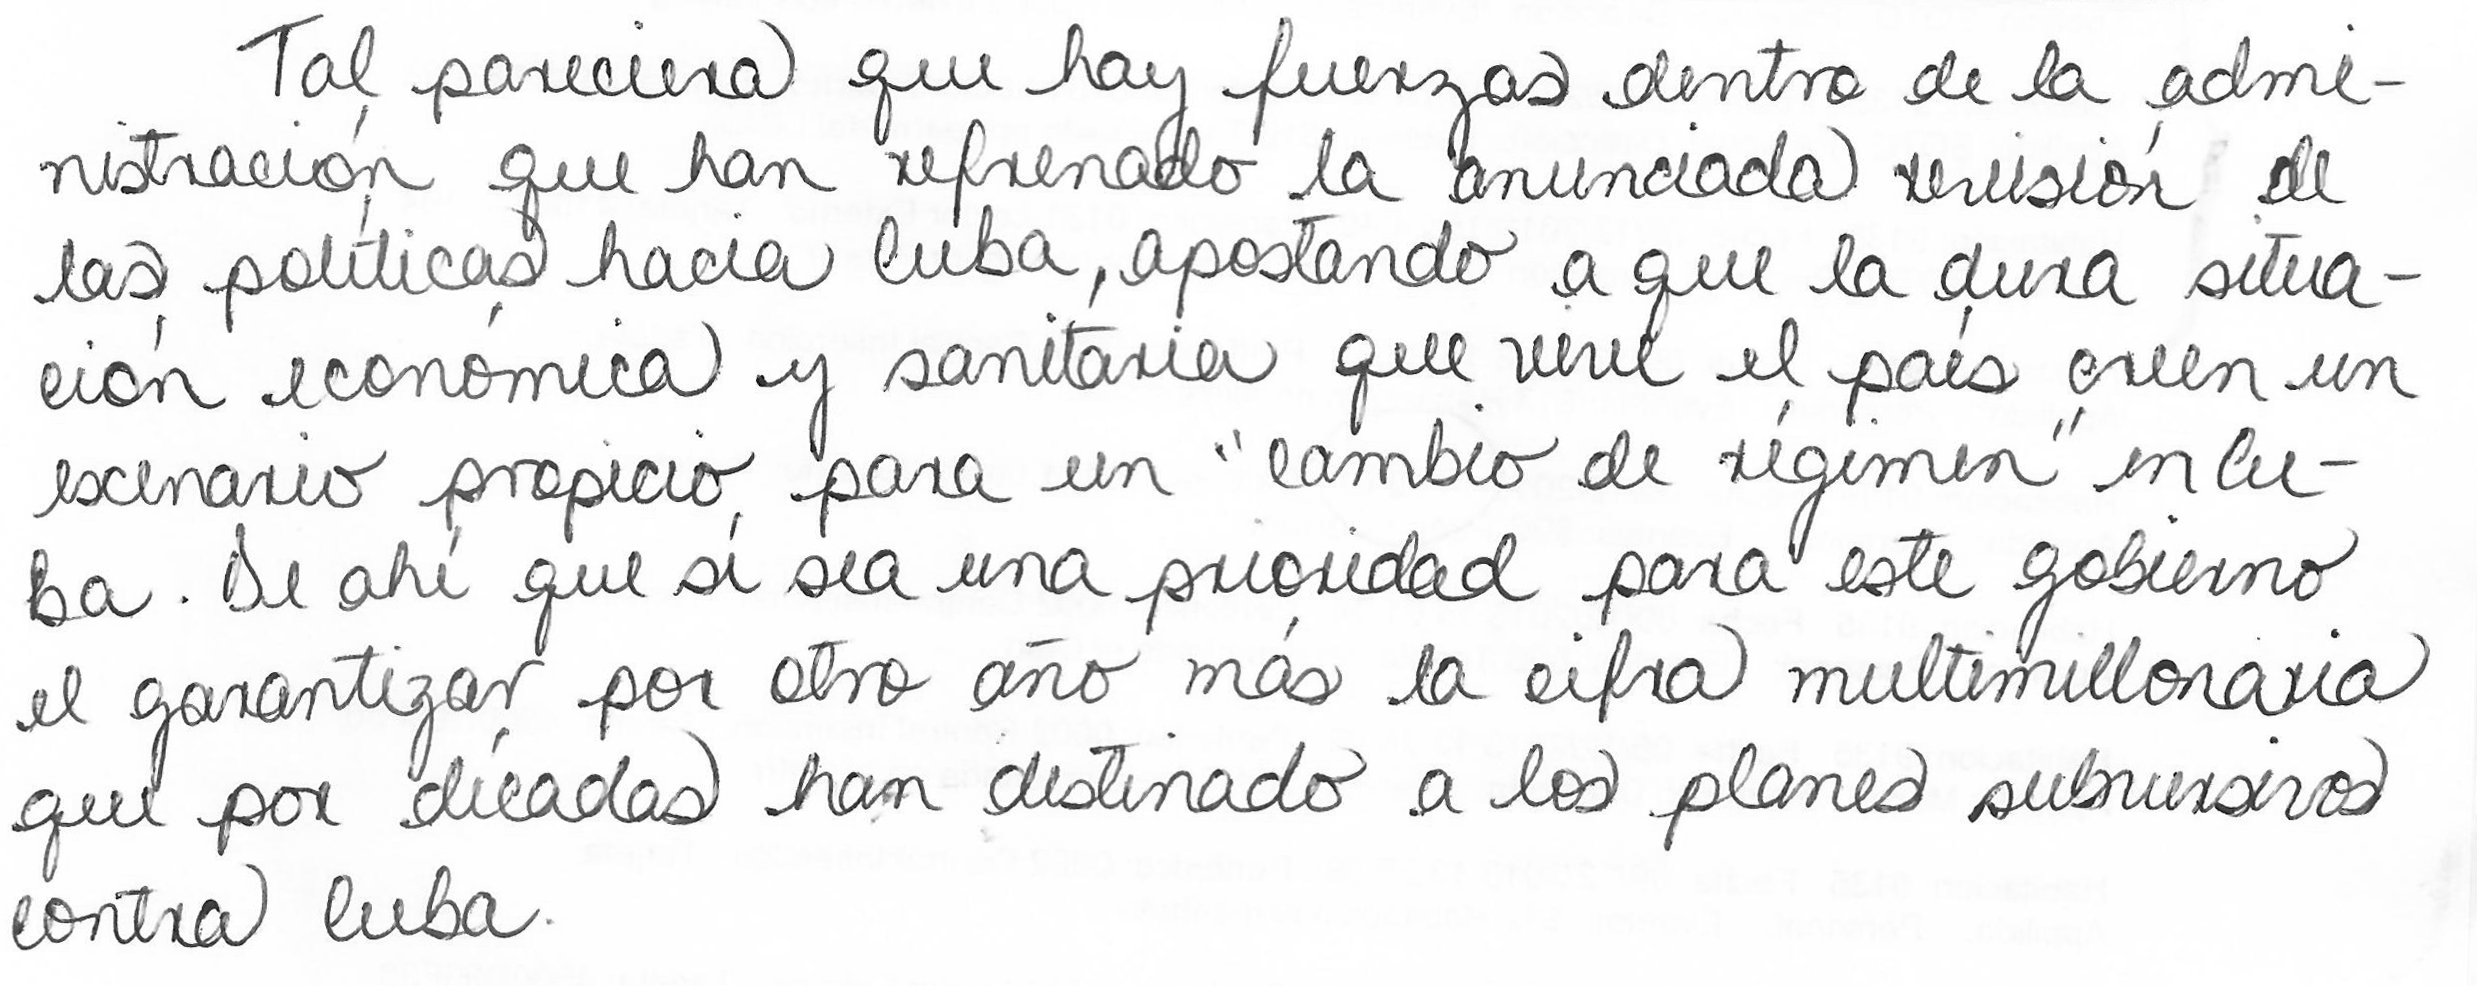 Tal pareciera que hay fuerzas dentro de la admi-
nistración que han refrenado la anunciada revisión de
las políticas hacia Cuba, apostando a que la dura situa-
ción económica y sanitaria que vive el país creen un
escenario propicio para un "cambio de régimen" en Cu-
ba. De ahí que sí sea una prioridad para este gobierno
el garantizar por otro año más la cifra multimillonaria
que por décadas han destinado a los planes subversivos
contra Cuba.